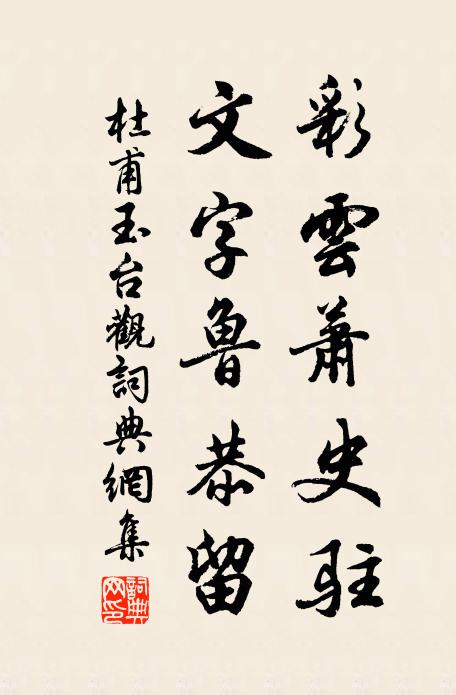 彩雲蕭史駐
文字魯恭留
杜甫玉台觀詞典網集
詞典网印